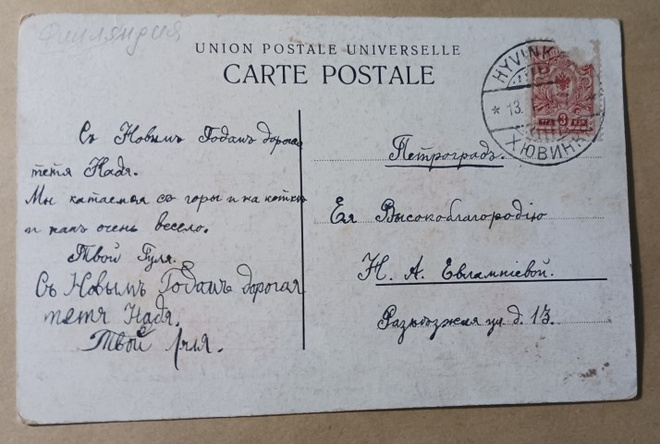 Финляндия
UNION POSTALE UNIVERSELLE
CARTE POSTALE
HYVINK
13.
3
ХЮВИНК
Съ Новымъ Годамъ дорога
тетя Надя.
Мы катаемся съ горы и на коткѣ
и намъ очень весело.
Твой Гуля.
Съ Новымъ Годамъ дорогая
тетя Надя.
Твой
Петроградъ.
Ея Высокоблагородію
Н. А. Евлампіевой.
Разъѣзжая ул. д. 13.